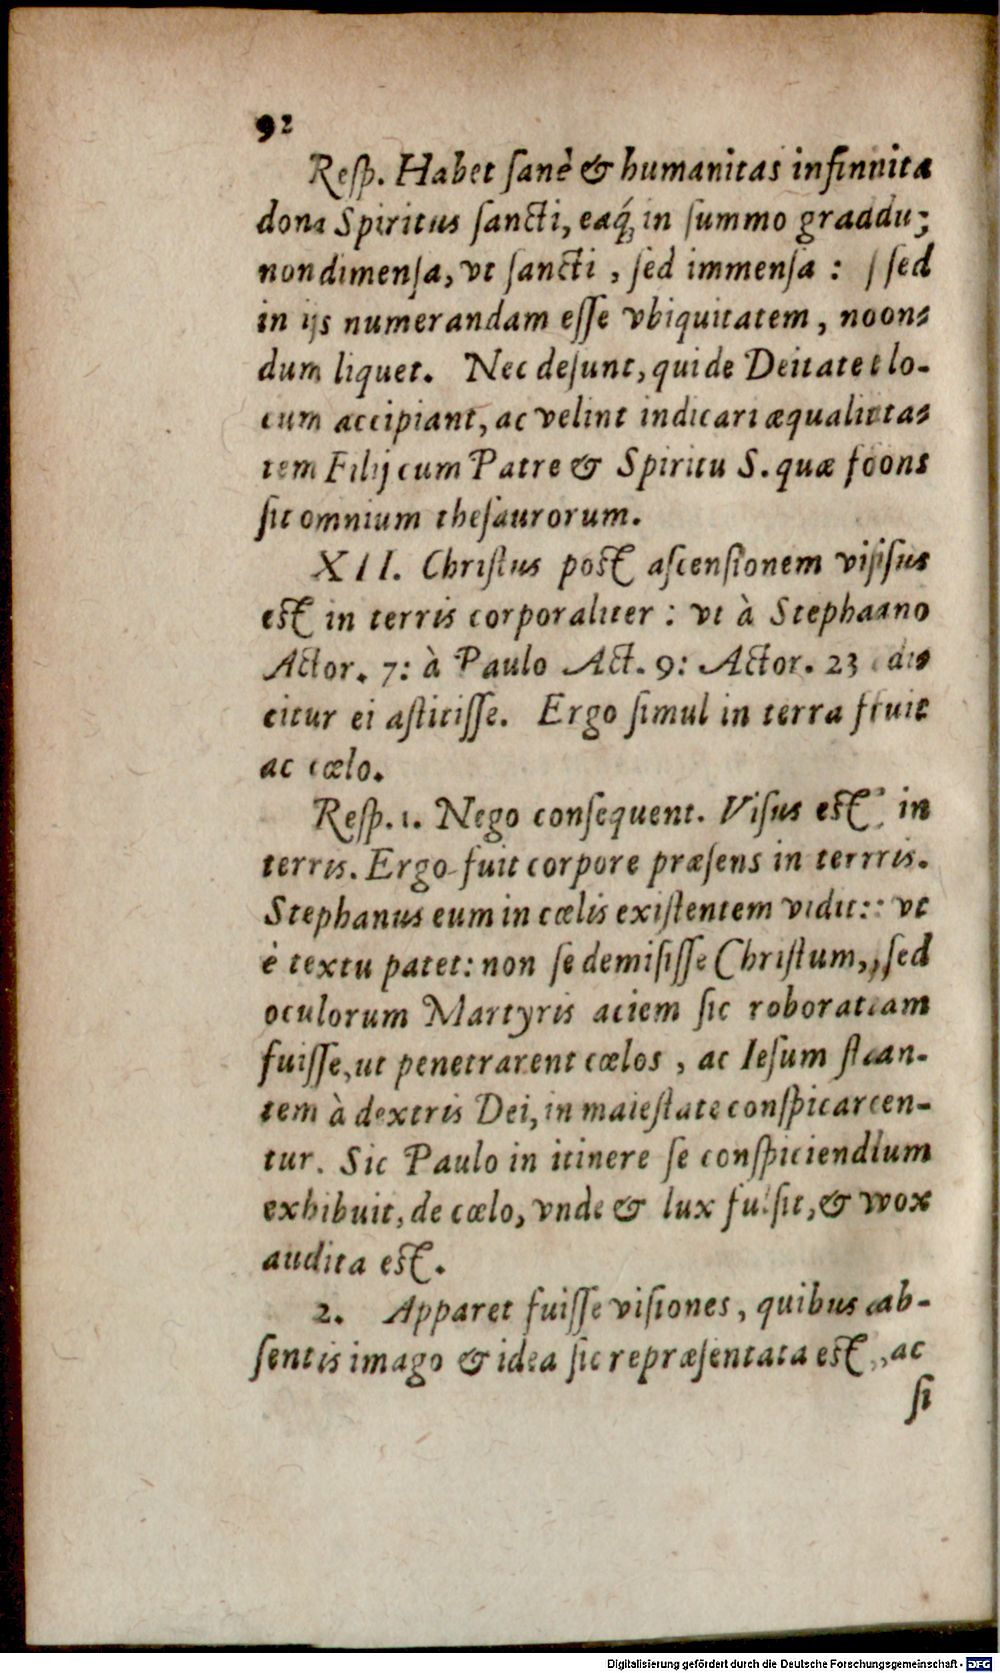 92
Resp. Habet sanè & humanitas infinnita
dona Spiritus sancti, eaq́; in summo graddu;
non dimensa, vt sancti, sed immensa: ssed
in ijs numerandam esse vbiquitatem, noon-
dum liquet. Nec desunt, qui de Deitate t lo-
cum accipiant, ac velint indicari æqualittas
tem Filij cum Patre & Spiritu S. quæ foons
sit omnium thesaurorum.
XII. Christus post ascensionem visisus
est in terris corporaliter: vt à Stephaano
Actor. 7: à Paulo Act. 9: Actor. 23 dis
citur ei astitisse. Ergo simul in terra ffuit
ac cœlo.
Resp. 1. Nego consequent. Visus est in
terris. Ergo fuit corpore præsens in terrris.
Stephanus eum in cœlis existentem vidit:: vt
è textu patet: non se demisisse Christum,, sed
oculorum Martyris aciem sic roborataam
fuisse, ut penetrarent cœlos, ac Iesum staan-
tem à dextris Dei, in maiestate conspicareen-
tur. Sic Paulo in itinere se conspiciendlum
exhibuit, de cœlo, vnde & lux fulsit, & vvox
audita est.
2. Apparet fuisse visiones, quibus aab-
sentis imago & idea sic repræsentata est,, ac
si
Digitalisierung gefördert durch die Deutsche Forschungsgemeinschaft - DFG